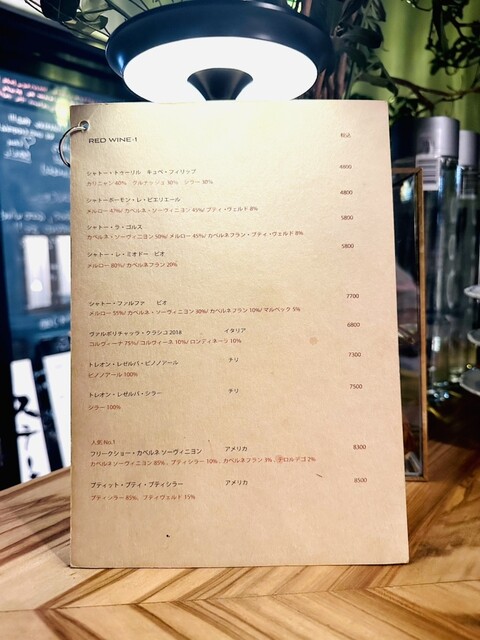 RED WINE-1 税込
シャトー・トゥーリル キュベ・フィリップ 4800
カリニャン 40% グルナッシュ 30% シラー 30%
シャトーボーモン・レ・ピエリエール 4800
メルロー 47%/ カベルネ・ソーヴィニヨン 45%/ プティ・ヴェルド 8%
シャトー・ラ・ゴルス 5800
カベルネ・ソーヴィニヨン 50%/ メルロー 45%/ カベルネフラン・プティ・ヴェルド 8%
シャトー・レ・ミオドー ビオ 5800
メルロー 80%/ カベルネフラン 20%
シャトー・ファルファ ビオ 7700
メルロー 55%/ カベルネ・ソーヴィニヨン 30%/ カベルネフラン 10%/ マルベック 5%
ヴァルポリチャック・クラシコ 2018 イタリア 6800
コルヴィーナ 75%/ コルヴィーネ 10%/ ロンディネーラ 10%
トレオン・レゼルバ・ピノノアール チリ 7300
ピノノアール 100%
トレオン・レゼルバ・シラー チリ 7500
シラー 100%
人気 No.1
フリークショー・カベルネ ソーヴィニヨン アメリカ 8300
カベルネソーヴィニヨン 85%、プティシラー 10%、カベルネフラン 3%、テロルデゴ 2%
プティット・プティ・プティシラー アメリカ 8500
プティシラー 85%、プティヴェルド 15%